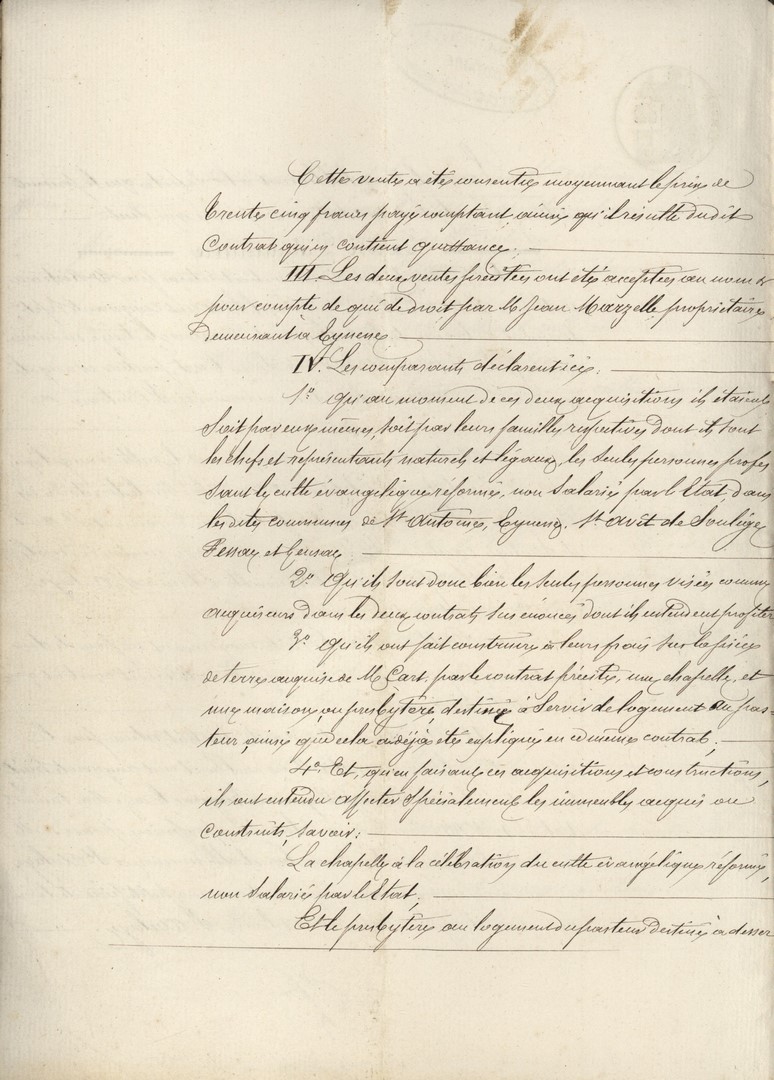 Cette vente a été consentie moyennant le prix de
trente cinq francs payé comptant, ainsi qu'il résulte dudit
Contrat qui en contient quittance.
III. Les deux ventes précitées ont été acceptées au nom &
pour compte de qui de droit par M. Jean Marzelle propriétaire
Demeurant à Eynesse
IV. Les comparants déclarent ici:
1° qu'au moment de ces deux acquisitions ils étaient
soit par eux mêmes, soit par leurs familles respectives dont ils sont
les chefs et représentants naturels et légaux, les seules personnes profes
sant le culte évangélique réformé, non salarié par l'Etat, dans
les dites communes de St Antoine, Eynesse, St Avit de Soulège
et Gensac
2° Qu'ils sont donc bien les seules personnes visées comme
acquéreurs dans les deux contrats sus énoncés dont ils entendent profiter
3° qu'ils ont fait construire à leurs frais sur la pièce
de terre acquise de M. Cart, par le contrat précité, une chapelle, et
une maison, ou presbytère, destinée à servir de logement au pas-
teur, ainsi que cela a déjà été expliqué en ce même contrat.
4° Et, qu'en faisant ces acquisitions et constructions,
ils ont entendu affecter spécialement les immeubles acquis ou
Construits, savoir:
La chapelle à la célébration du culte évangélique réformé,
non salarié par l'Etat,
Et le presbytère au logement du pasteur destiné à desser